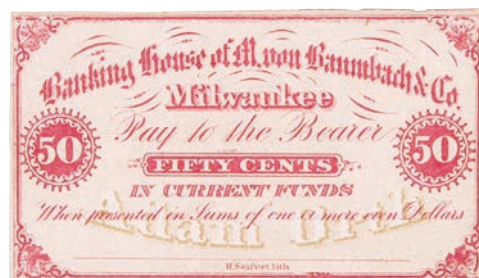 Banking House of M. von Baumbach & Co.
Milwaukee
Pay to the Bearer
50 FIFTY CENTS 50
IN CURRENT FUNDS
When presented in Sums of one or more even Dollars
Adam Orth